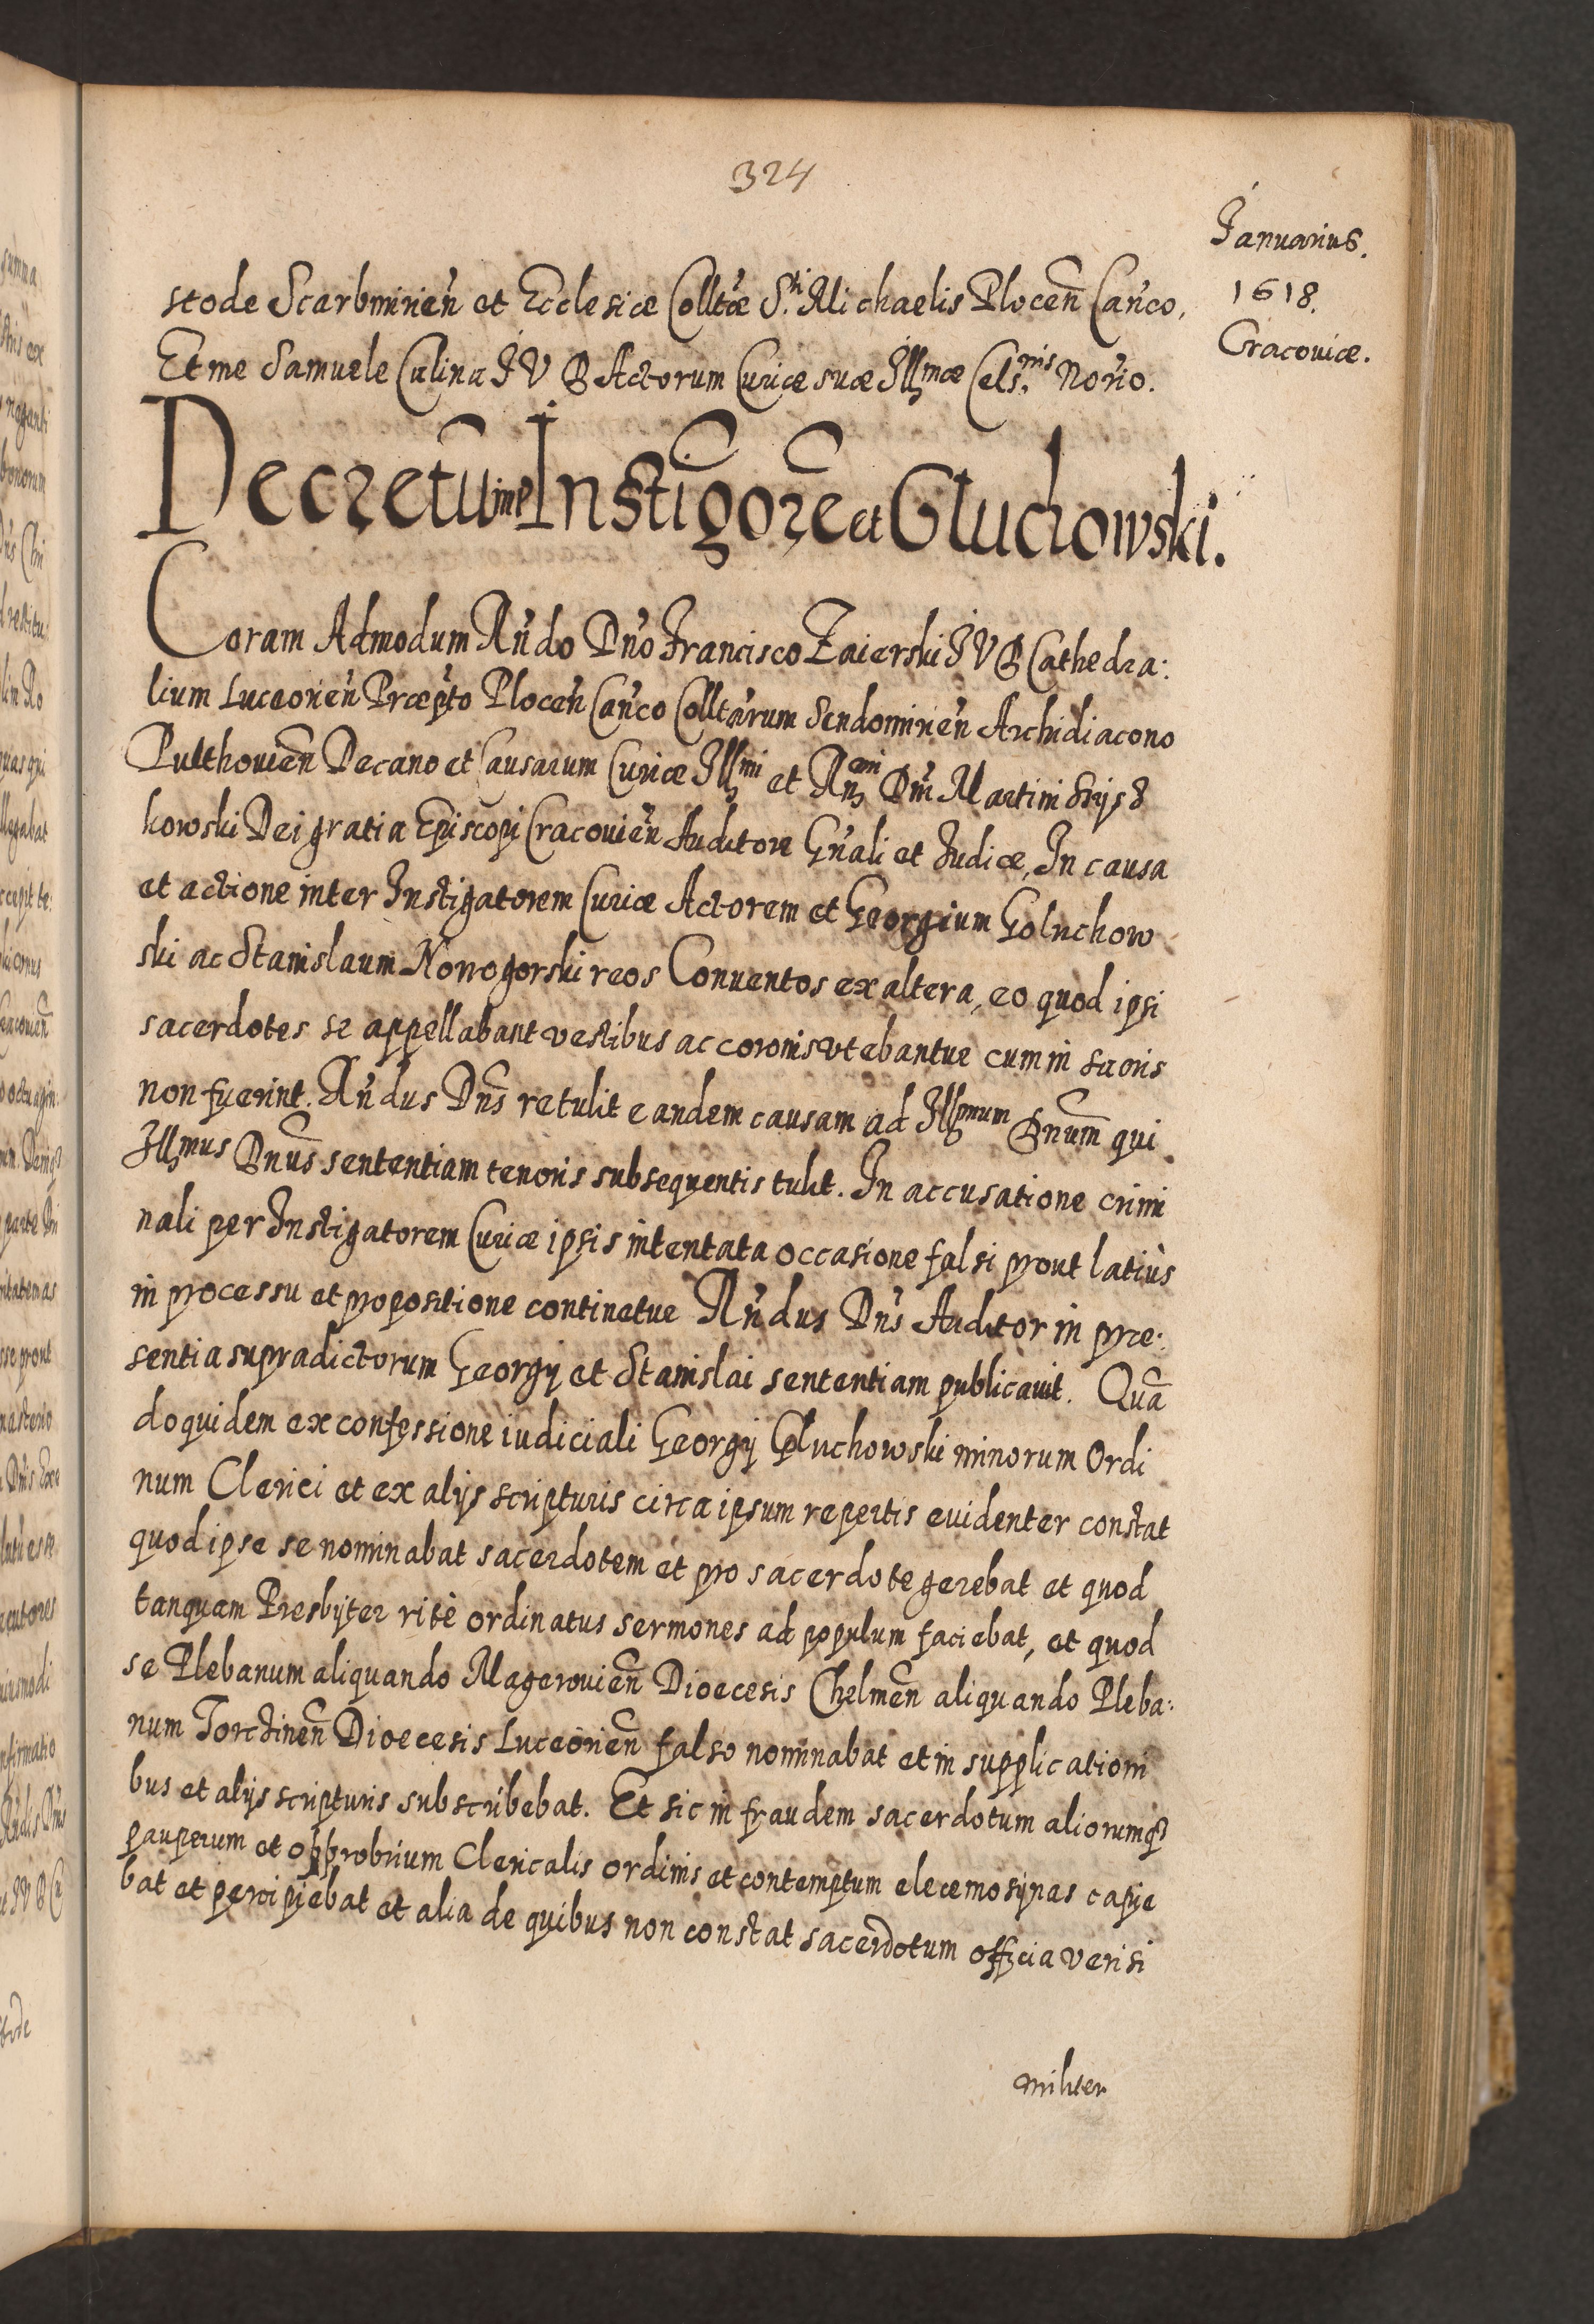 324
Januarius.
1618.
Cracoviæ.
stode Scarbmirien̄ et Ecclesiæ Colltæ S.ti Michaelis Plocen̄ Can̄co,
Et me Samuele Culina J V D Actorum Curiæ suæ Illmæ Cels.nis Norio.
Decretū inr Instigorē et Gluchowski.
Coram Admodum Rn̄do Dn̄o Francisco Zaierski J V D Cathedra:
lium Luceorien̄ Præpto Plocen̄ Can̄co Colltarum Sendomirien̄ Archidiacono
Pulthovien̄ Decano et Causarum Curiæ Illmi et Rn̄mi Dn̄i Martini Szysz
kowski Dei gratia Episcopi Cracovien̄ Auditore Gn̄ali et Judice, In causa
et actione inter Instigatorem Curiæ Actorem et Georgium Goluchow
ski ac Stanislaum Nowogorski reos Conventos ex altera, eo quod ipsi
sacerdotes se appellabant vestibus ac coronis vtebantur cum in sacris
non fuerint. Rn̄dus Dn̄s retulit eandem causam ad Illmum Dn̄um qui
Illmus Dn̄us sententiam tenoris subsequentis tulit. In accusatione crimi
nali per Instigatorem Curiæ ipsis intentata occasione falsi prout latiùs
in processu et propositione continetur Rn̄dus Dn̄s Auditor in præ:
sentia supradictorum Georgij et Stanislai sententiam publicavit. Quā
doquidem ex confessione iudiciali Georgij Goluchowski minorum Ordi
num Clerici et ex alijs scripturis circa ipsum repertis evidenter constat
quod ipse se nominabat sacerdotem et pro sacerdote gerebat et quod
tanquam Presbyter ritè ordinatus sermones ad populum faciebat, et quod
se Plebanum aliquando Magerovien̄ Dioecesis Chelmen̄ aliquando Pleba:
num Torczinen̄ Dioecesis Luceorien̄ falso nominabat et in supplicationi
bus et alijs scripturis subscribebat. Et sic in fraudem sacerdotum aliorumq;
pauperum et opprobrium Clericalis ordinis et contemptum eleemosynas capie
bat et percipiebat et alia de quibus non constat sacerdotum officia verisi
militer